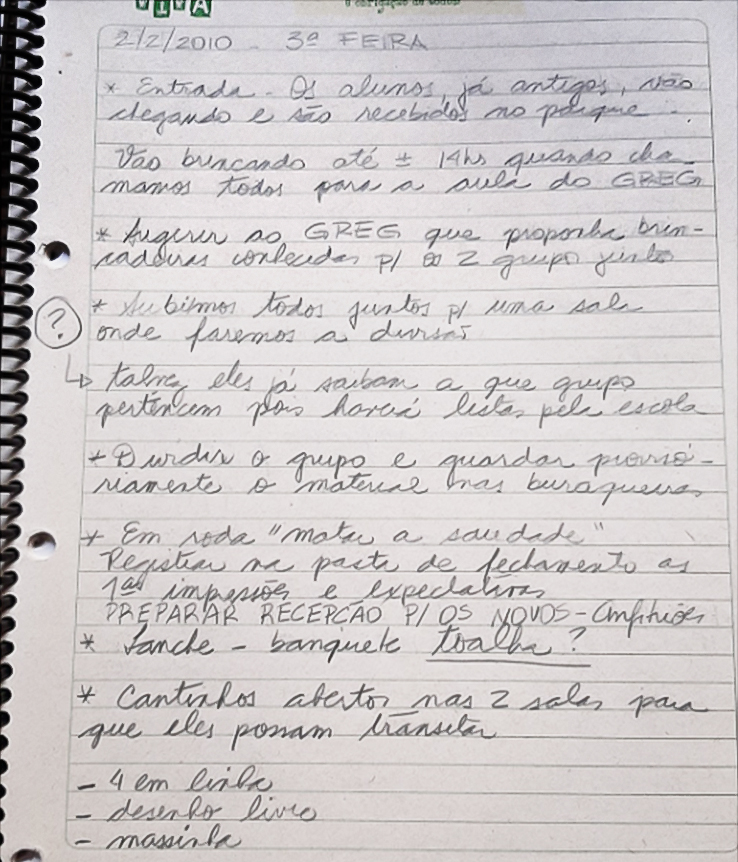 VIVA
é obrigação de todos
2/2/2010 - 3ª FEIRA
* Entrada - Os alunos, já antigos, vão
chegando e são recebidos no parque.
Vão brincando até ± 14hs quando cha-
mamos todos para a aula do GREG
* Sugerir ao GREG que proponha brin-
cadeiras conhecidas p/ os 2 grupos juntos
* Subimos todos juntos p/ uma sala
? onde faremos a divisão
↳ talvez eles já saibam a que grupo
pertencem pois haverá listas pela escola
* Dividir o grupo e guardar provisó-
riamente o material nas buraqueiras
* Em roda "matar a saudade"
Registrar na pasta de fechamento as
1ªs impressões e expectativas
PREPARAR RECEPÇÃO P/ OS NOVOS - Anfitriões
* Lanche - banquete toalha?
* Cantinhos abertos nas 2 salas para
que eles possam transitar
- 4 em linha
- desenho livre
- massinha